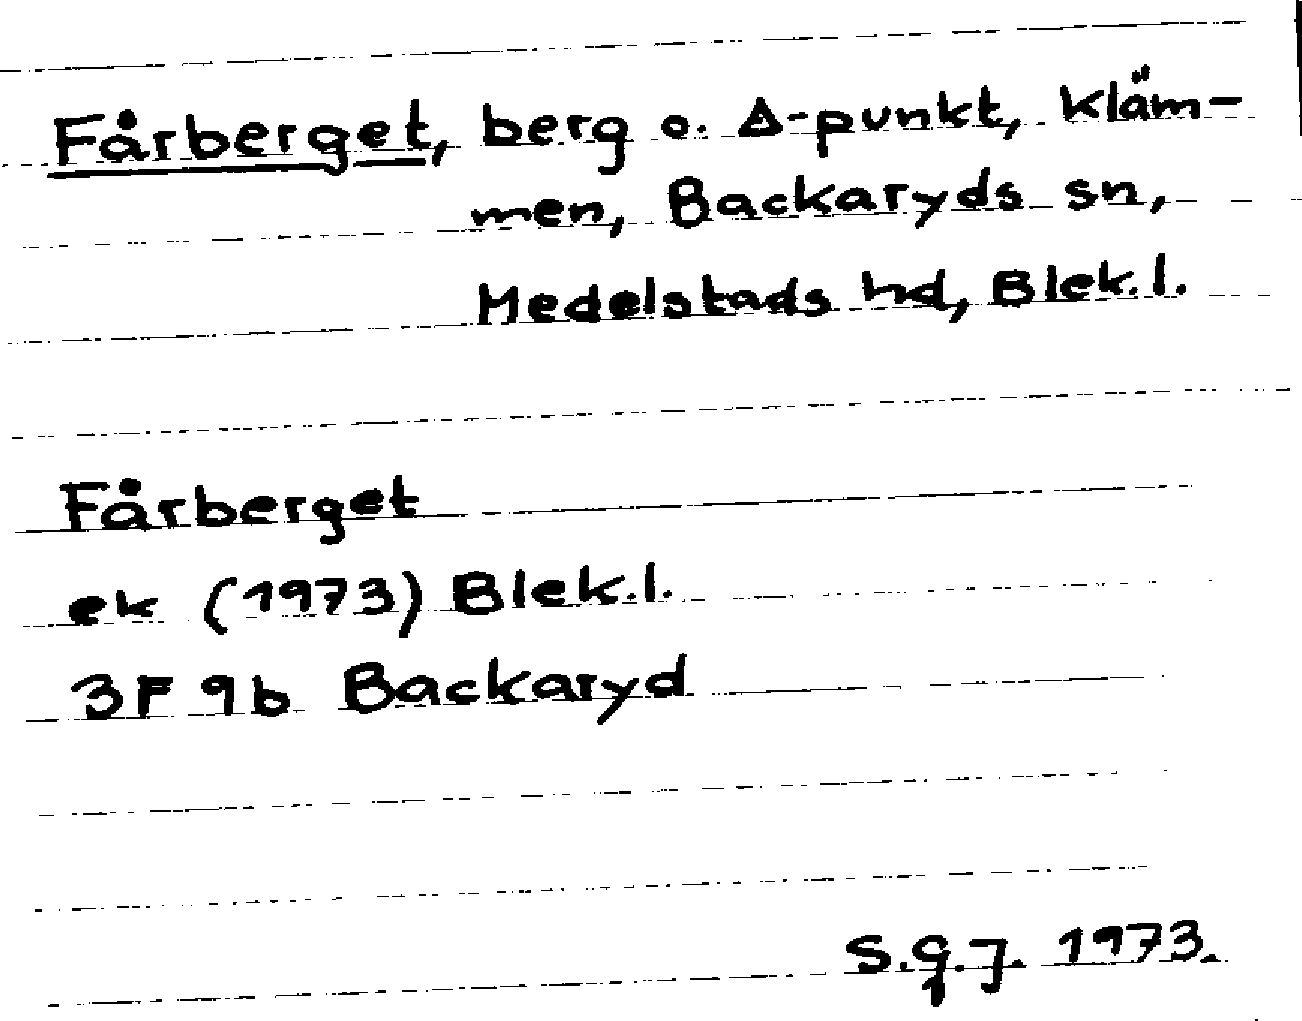 Fårberget, berg o. Δ-punkt, Kläm-
men, Backaryds sn,
Medelstads hd, Blek.l.
Fårberget
ek (1973) Blek.l.
3F 9b Backaryd
S.g.J. 1973.